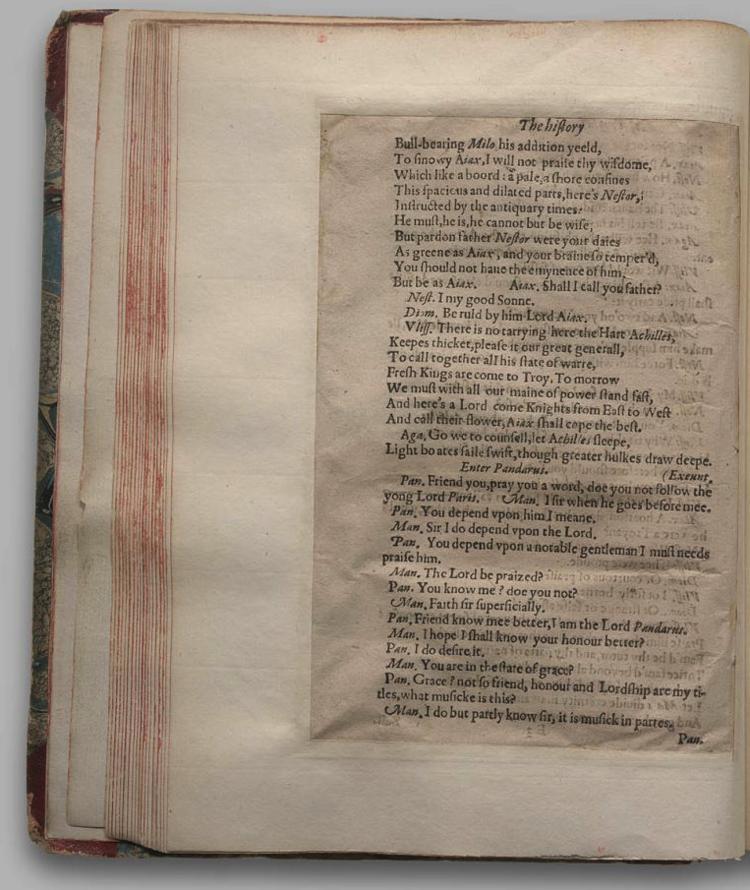 The hiſtory
Bull-bearing Milo his addition yeeld,
To ſinowy Aiax, I will not praiſe thy wiſdome,
Which like a boord: a pale, a ſhore confines
This ſpacious and dilated parts, here's Neſtor,
Inſtructed by the antiquary times:
He muſt, he is, he cannot but be wiſe,
But pardon father Neſtor were your daies
As greene as Aiax, and your braine ſo temper'd,
You ſhould not haue the emynence of him,
But be as Aiax. Aiax. Shall I call you father?
Neſt. I my good Sonne.
Diom. Be ruld by him Lord Aiax.
Vliſſ. There is no tarrying here the Hart Achilles,
Keepes thicket, pleaſe it our great generall,
To call together all his ſtate of warre,
Freſh Kings are come to Troy. To morrow
We muſt with all our maine of power ſtand faſt,
And here's a Lord come Knights from Eaſt to Weſt
And call their flower, Aiax ſhall cope the beſt.
Aga. Go we to counſell, let Achilles ſleepe,
Light boates ſaile ſwift, though greater hulkes draw deepe.
Enter Pandarus. (Exeunt.
Pan. Friend you, pray you a word, doe you not follow the
yong Lord Paris. Man. I ſir when he goes before mee.
Pan. You depend vpon him I meane.
Man. Sir I do depend vpon the Lord.
Pan. You depend vpon a notable gentleman I muſt needs
praiſe him.
Man. The Lord be praized?
Pan. You know me? doe you not?
Man. Faith ſir ſuperficially.
Pan. Friend know mee better, I am the Lord Pandarus.
Man. I hope I ſhall know your honour better?
Pan. I do deſire it.
Man. You are in the ſtate of grace?
Pan. Grace? not ſo friend, honour and Lordſhip are my ti-
tles, what muſicke is this?
Man. I do but partly know ſir, it is muſick in partes.
Pan.